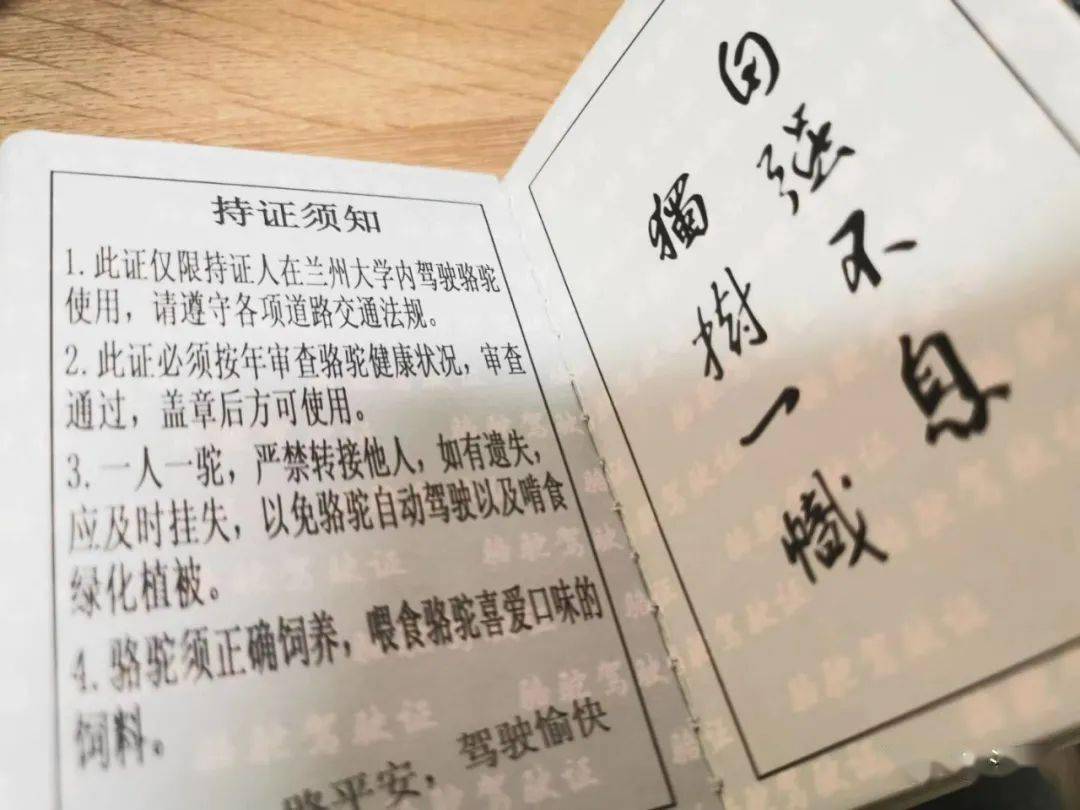 持证须知
1. 此证仅限持证人在兰州大学内驾驶骆驼
使用，请遵守各项道路交通法规。
2. 此证必须按年审查骆驼健康状况，审查
通过，盖章后方可使用。
3. 一人一驼，严禁转接他人，如有遗失，
应及时挂失，以免骆驼自动驾驶以及啃食
绿化植被。
4. 骆驼须正确饲养，喂食骆驼喜爱口味的
饲料。
路平安，驾驶愉快
自强不息
獨樹一幟
骆驼驾驶证